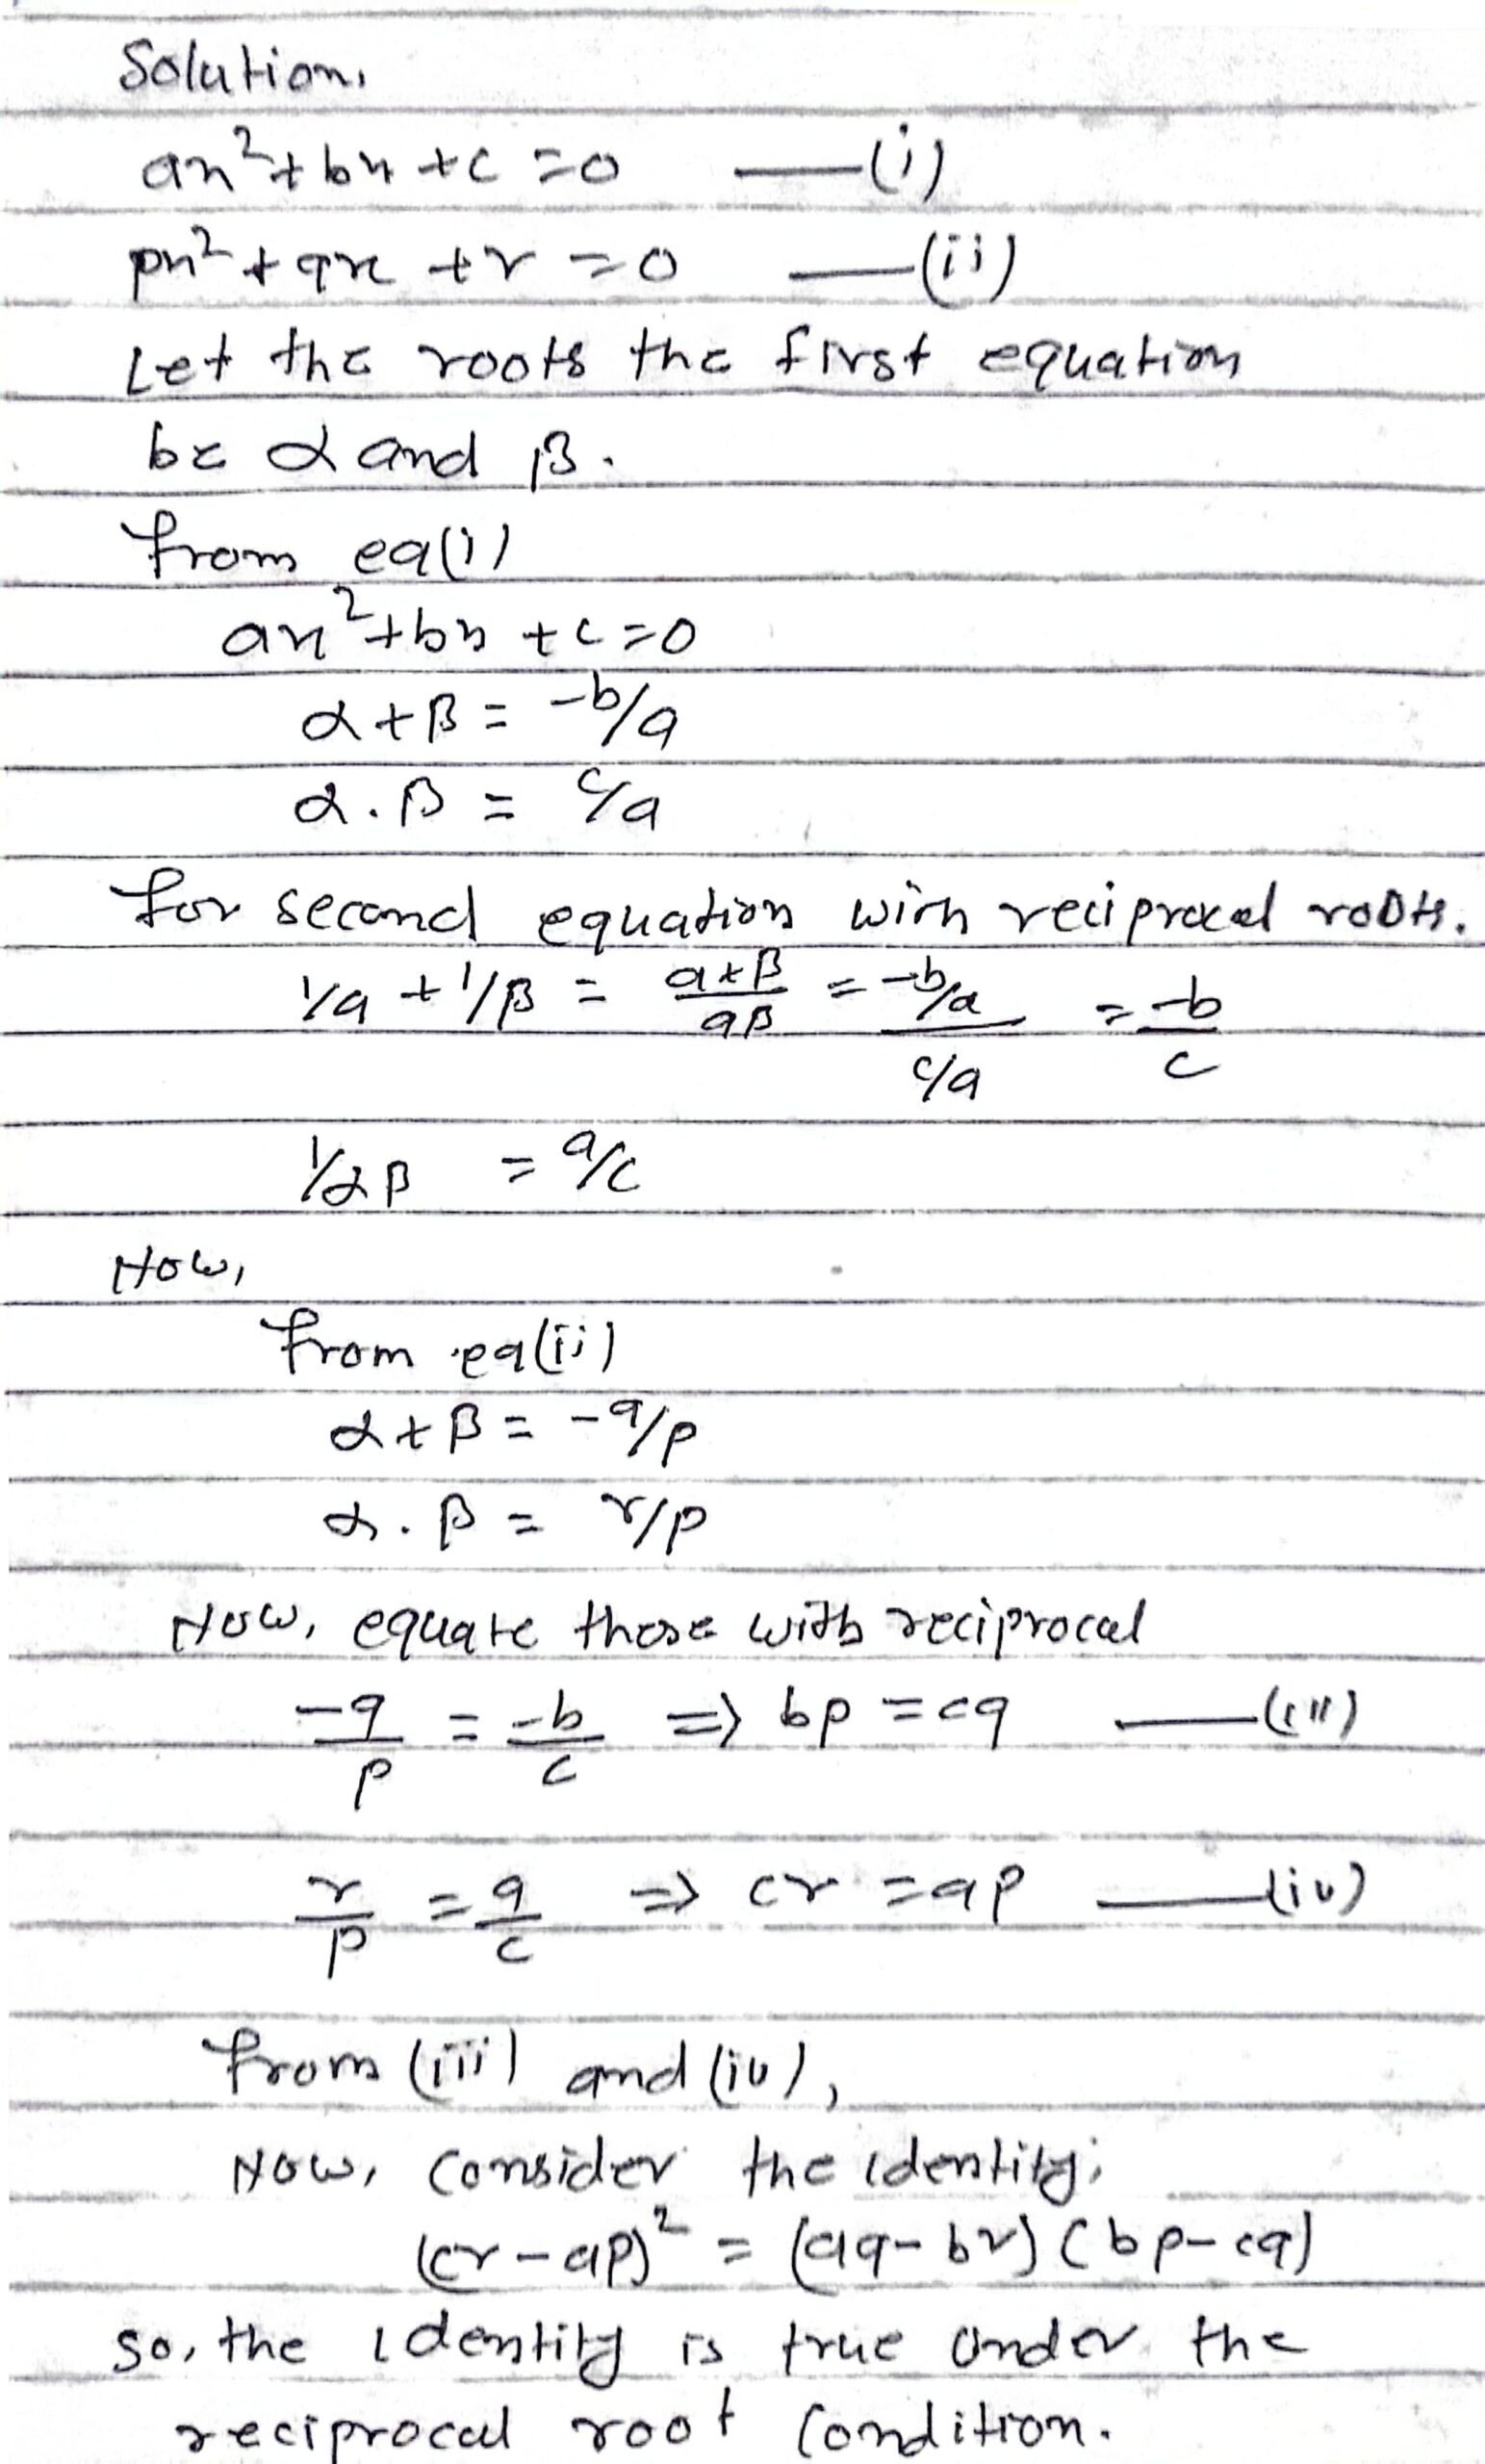 Solution,
ax²+bx+c=0 —(i)
px²+qx+r=0 —(ii)
Let the roots the first equation
be α and β.
from eq(i)
ax²+bx+c=0
α+β = -b/a
α.β = c/a
for second equation with reciprocal roots.
1/a + 1/β = a+β/aβ = -b/a / c/a = -b/c
1/αβ = a/c
Now,
from eq(ii)
α+β = -q/p
α.β = r/p
Now, equate these with reciprocal
-q/p = -b/c => bp = cq —(iii)
r/p = a/c => cr = ap —(iv)
from (iii) and (iv),
Now, consider the identity;
(cr-ap)² = (aq-br)(bp-cq)
so, the identity is true under the
reciprocal root condition.